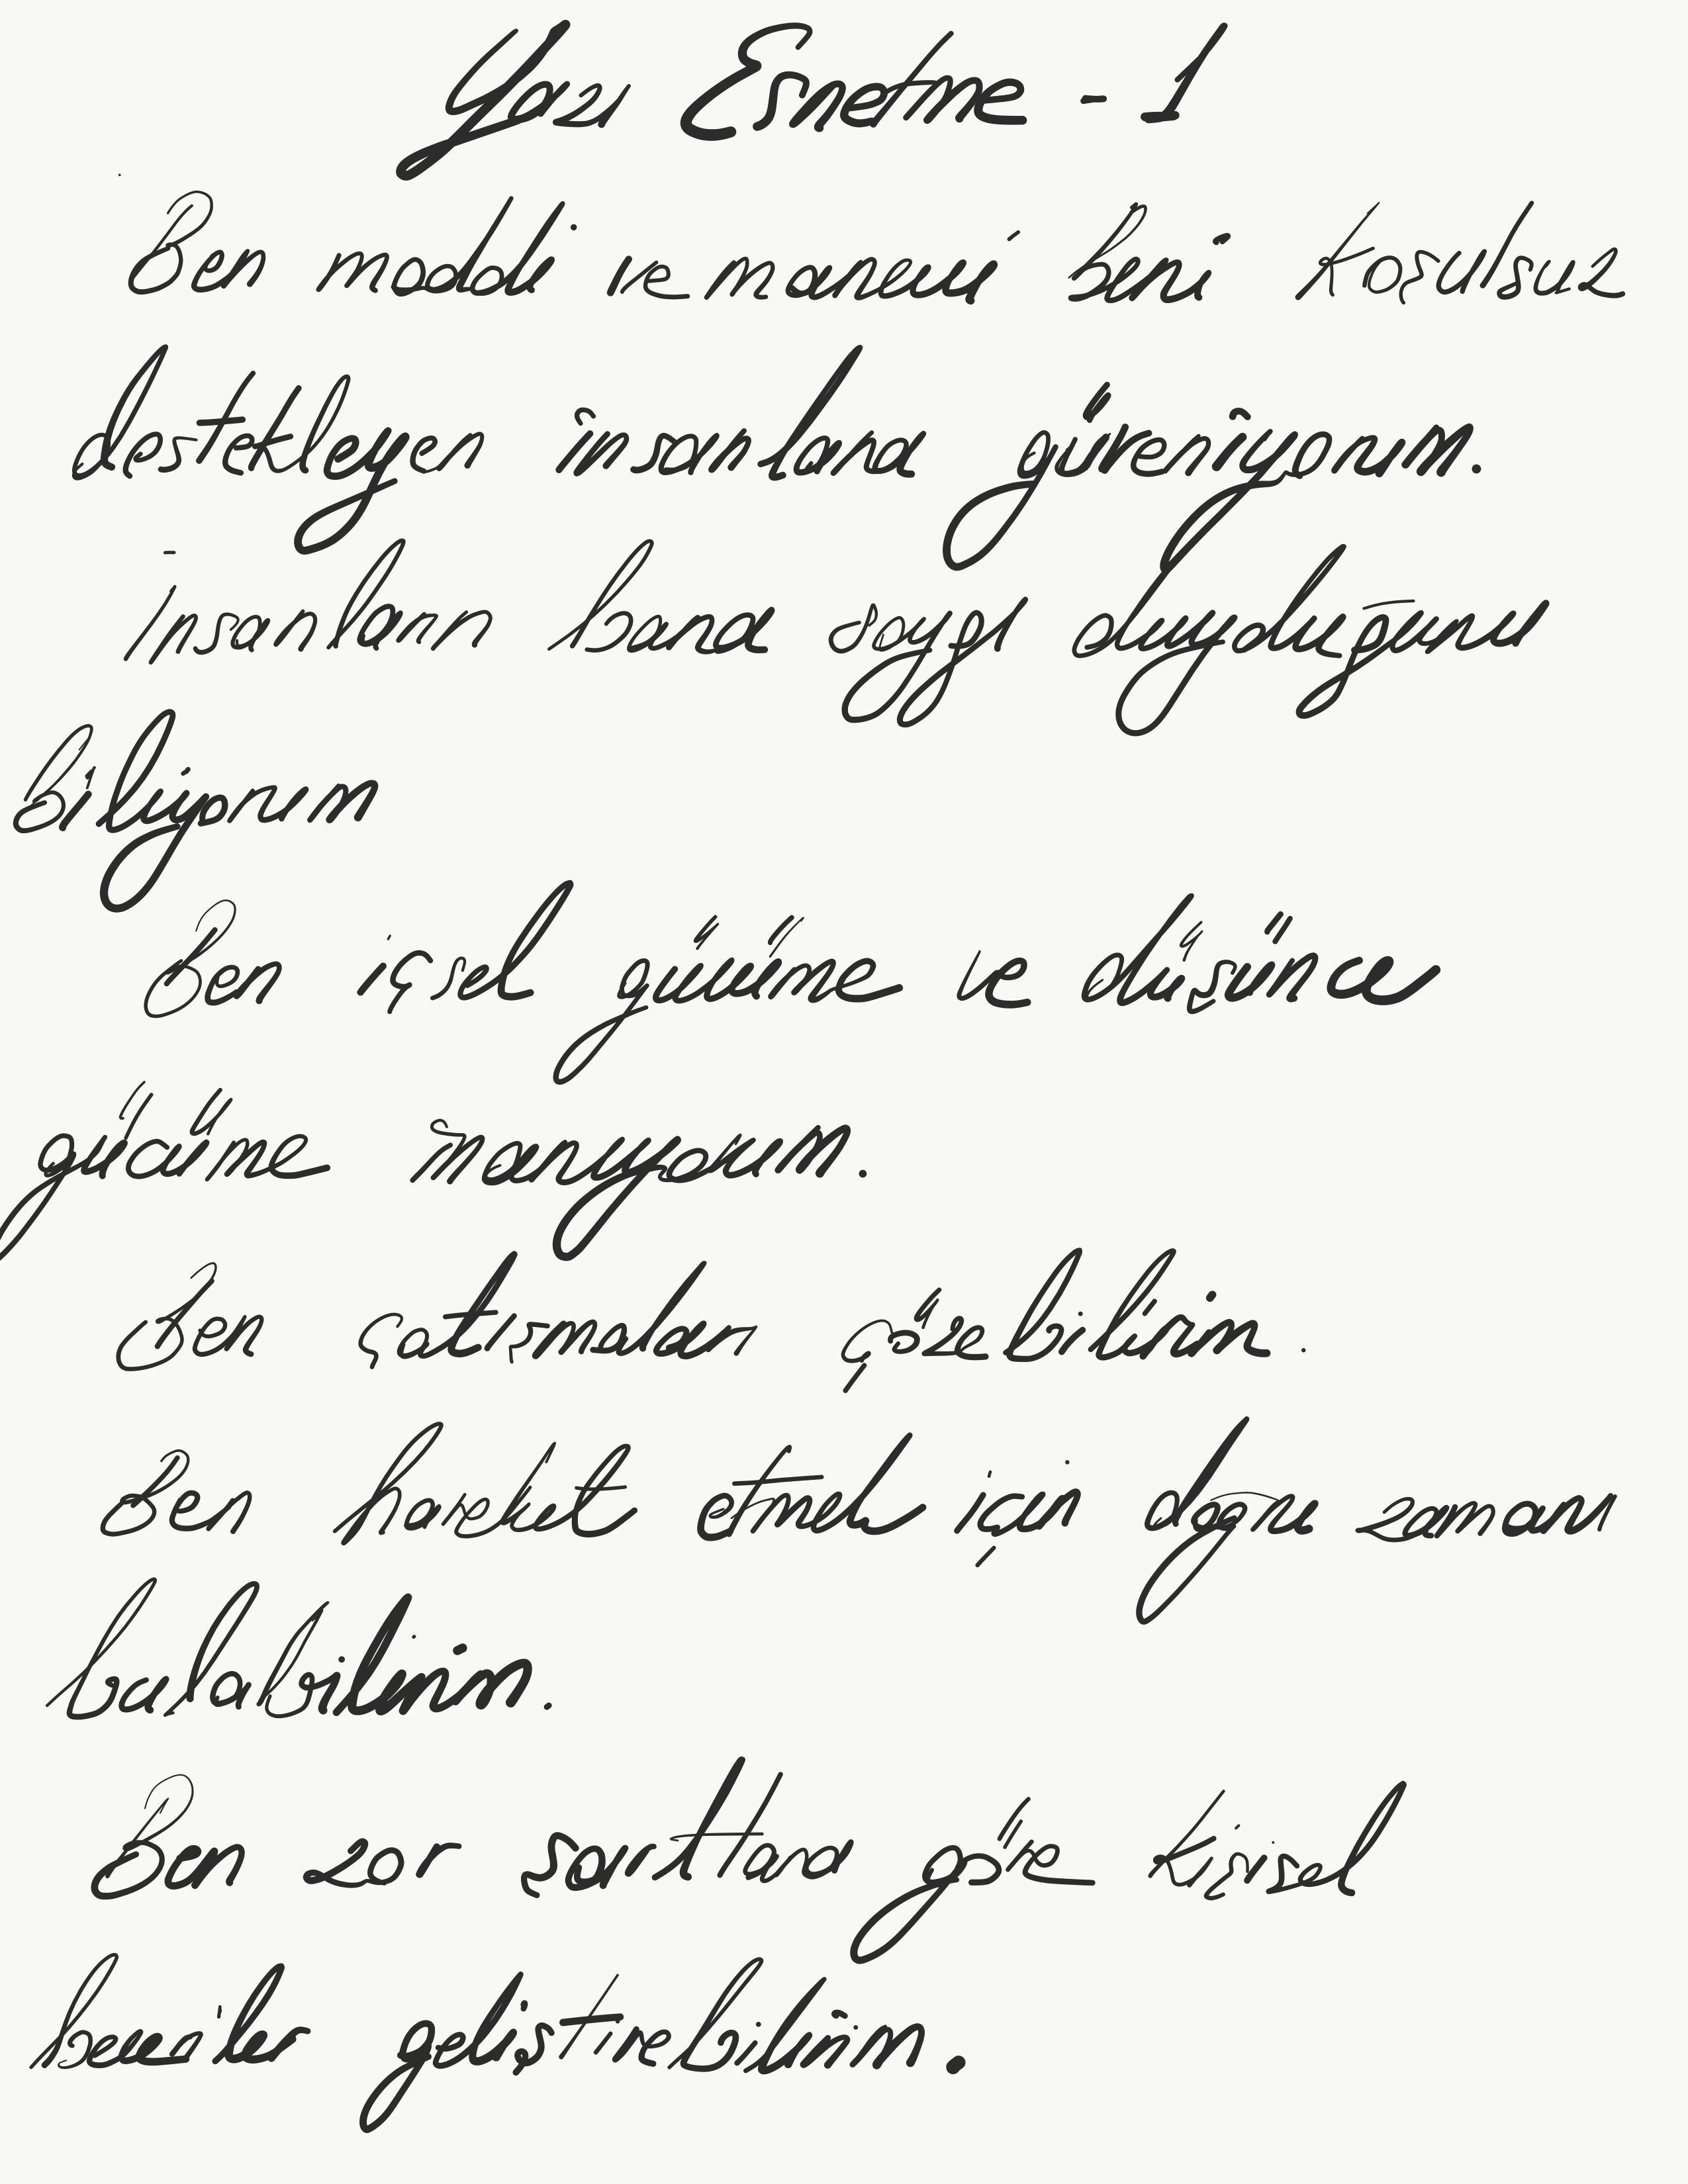 Yazı Esnetme - 1
Ben maddi ve manevi beni koşulsuz
destekleyen insanlara güveniyorum.
İnsanların bana saygı duyduğunu
biliyorum
Ben içsel gücüme ve düşünce
gücüme inanıyorum.
Ben çatışmaları çözebilirim.
Ben hareket etmek için doğru zamanı
bulabilirim.
Ben zor şartlara göre kişisel
beceriler geliştirebilirim.